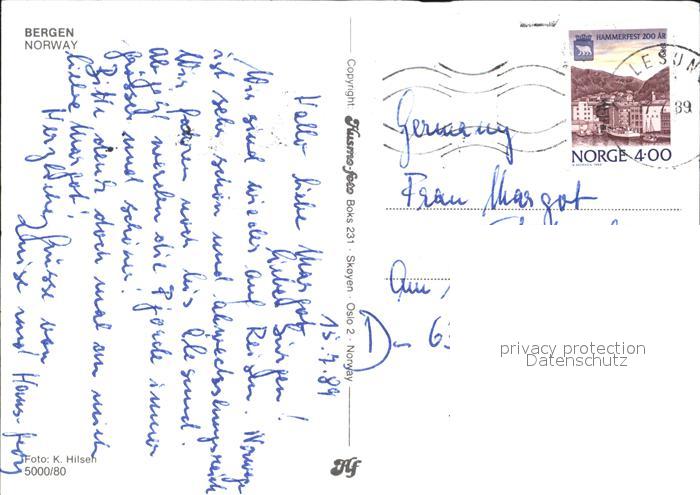 BERGEN
NORWAY
15.7.89
Hallo liebe Margot,
lieber Jürgen!
Wir sind wieder auf Reisen. Norwegen
ist sehr schön und abwechslungsreich
Wir fahren noch bis Ålesund.
ab jetzt werden die Fjorde immer
größer und schöner!
Bitte denk doch mal an mich
liebe Margot!
Herzliche Grüsse von
Luise und Hans-
Foto: K. Hilsen
5000/80
Copyright: Husmo foto Boks 231 · Skøyen · Oslo 2 · Norway
Hf
HAMMERFEST 200 ÅR
NORGE 4.00
LESUN
89
Germany
Frau Margot
Am
D- 63
privacy protection
Datenschutz